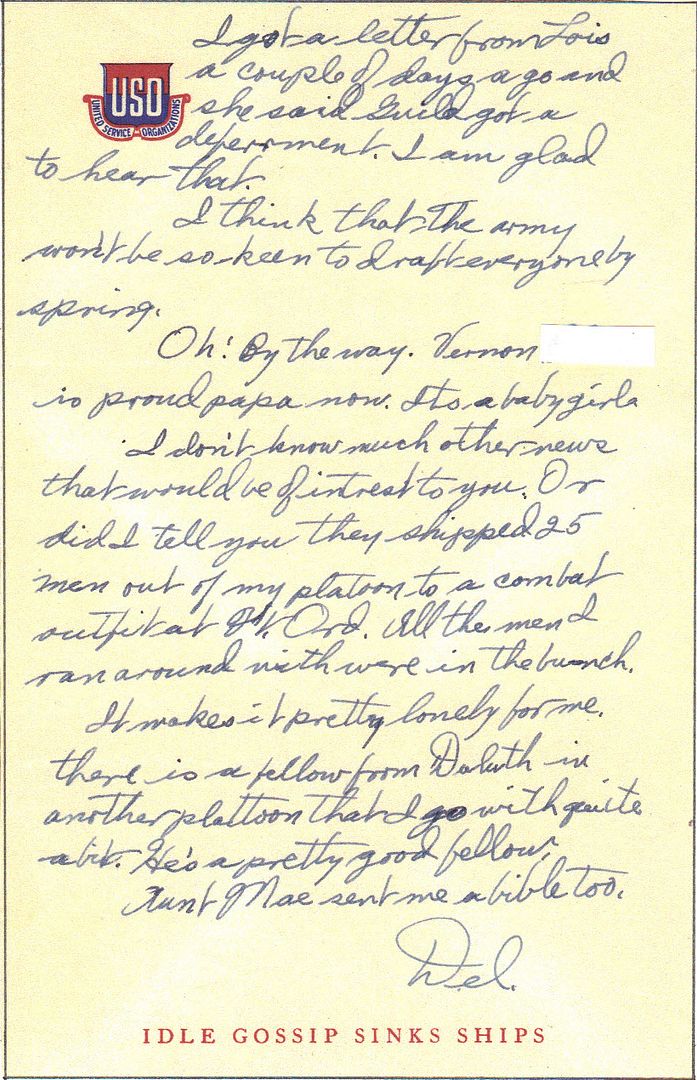 I got a letter from Lois
a couple of days ago and
she said Guild got a
deferrment. I am glad
to hear that.
USO
UNITED SERVICE ORGANIZATIONS
I think that The army
won't be so keen to draft everyone by
spring.
Oh! By the way. Vernon
is proud papa now. Its a baby girl.
I don't know much other news
that would be of intrest to you. Or
did I tell you they shipped 25
men out of my platoon to a combat
outfit at Ft. Ord. All the men I
ran around with were in the bunch.
It makes it pretty lonely for me.
there is a fellow from Duluth in
another plattoon that I go with quite
a bit. He's a pretty good fellow.
Aunt Mae sent me a bible too.
Del.
IDLE GOSSIP SINKS SHIPS